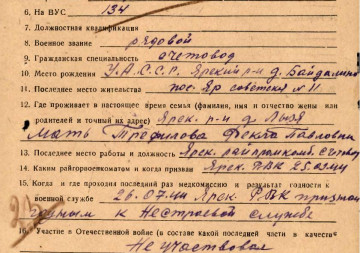 6. На ВУС 134
7. Должностная квалификация
8. Военное звание рядовой
9. Гражданская специальность счетовод
10. Место рождения У.А.С.С.Р. Ярский р-н д. Байдалино
11. Последнее место жительства пос. Яр советская № 11
12. Где проживает в настоящее время семья (фамилия, имя и отчество жены или
родителей и точный их адрес) Ярск. р-н д.
Мать Трефилова Фекла Павловна
13. Последнее место работы и должность Ярск.
14. Каким райгорвоенкоматом и когда призван Ярск. РВК 25.03.41
15. Когда и где проходил последний раз медкомиссию и результат годности к
военной службе 26.07.41 Ярск. РВК признан
годным к Нестроевой службе
16. Участие в Отечественной войне (в составе какой последней части в качестве
Не участвовал